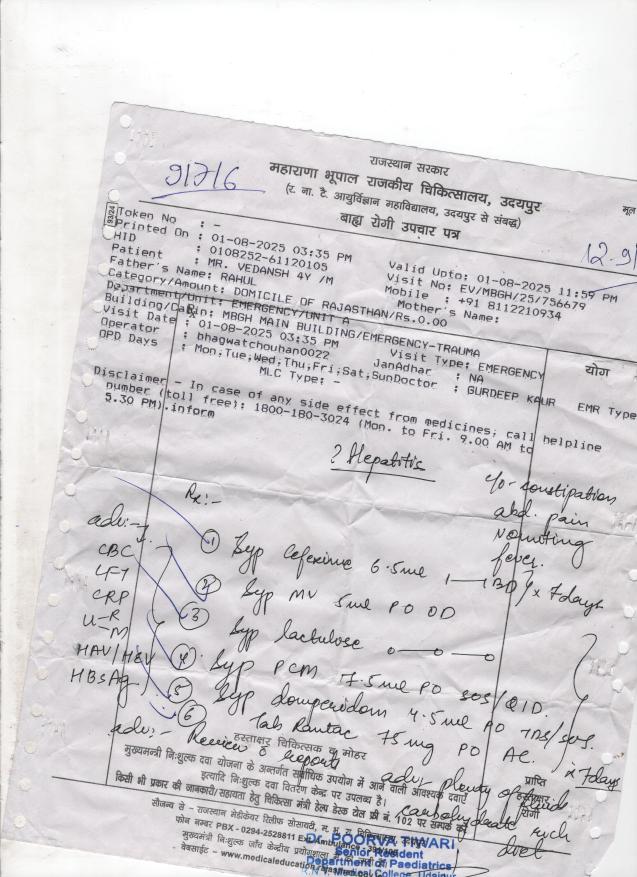 राजस्थान सरकार
महाराणा भूपाल राजकीय चिकित्सालय, उदयपुर
(र. ना. टै. आयुर्विज्ञान महाविद्यालय, उदयपुर से संबद्ध)
बाह्य रोगी उपचार पत्र
मूल
9324
Token No : -
Printed On : 01-08-2025 03:35 PM
Valid Upto: 01-08-2025 11:59 PM
HID : 0108252-61120105
Visit No: EV/MBGH/25/756679
Patient : MR. VEDANSH 4Y /M
Mobile : +91 8112210934
Father's Name: RAHUL
Mother's Name:
Category/Amount: DOMICILE OF RAJASTHAN/Rs.0.00
Department/Unit: EMERGENCY/UNIT A
Building/Cabin: MBGH MAIN BUILDING/EMERGENCY-TRAUMA
Visit Date : 01-08-2025 03:35 PM
Visit Type: EMERGENCY
योग
Operator : bhagwatchouhan0022
JanAdhar : NA
OPD Days : Mon;Tue;Wed;Thu;Fri;Sat;Sun
Doctor : GURDEEP KAUR
EMR Type
MLC Type: -
Disclaimer - In case of any side effect from medicines; call helpline
number (toll free): 1800-180-3024 (Mon. to Fri. 9.00 AM to
5.30 PM).inform
? Hepatitis
c/o - constipation
abd. pain
vomiting
fever.
Rx:-
adv:-
CBC
LFT
CRP
U-R
-M
HAV/HEV
HBsAg
1 Syp Cefexime 6.5ml 1—1 BD / x 7days
2 Syp MV 5ml PO OD
3 Syp lactulose o—o—o
4 Syp PCM 7.5ml PO SOS/QID.
5 Syp domperidom 4.5ml PO TDS/SOS.
6 Tab Rantac 75mg PO AC.
x 7days
adv:- Review c reports
adv plenty of fluids
carbohydrate rich
diet
हस्ताक्षर चिकित्सक व मोहर
मुख्यमन्त्री निःशुल्क दवा योजना के अन्तर्गत सर्वाधिक उपयोग में आने वाली आवश्यक दवाऐं
इत्यादि निःशुल्क दवा वितरण केन्द्र पर उपलब्ध है।
प्राप्ति
हस्ताक्षर
रोगी
किसी भी प्रकार की जानकारी/सहायता हेतु चिकित्सा मंत्री हेल्प डेस्क टोल फ्री नं. 102 पर सम्पर्क करें
सौजन्य से - राजस्थान मेडीकेयर रिलीफ सोसायटी, म. भू. रा. चिकित्सालय, उदयपुर
फोन नम्बर PBX - 0294-2528811
मुख्यमन्त्री निःशुल्क जाँच केन्द्रीय प्रयोगशाला
वेबसाईट - www.medicaleducation.rajasthan
Dr. POORVA TIWARI
Senior Resident
Department of Paediatrics
Medical College, Udaipur